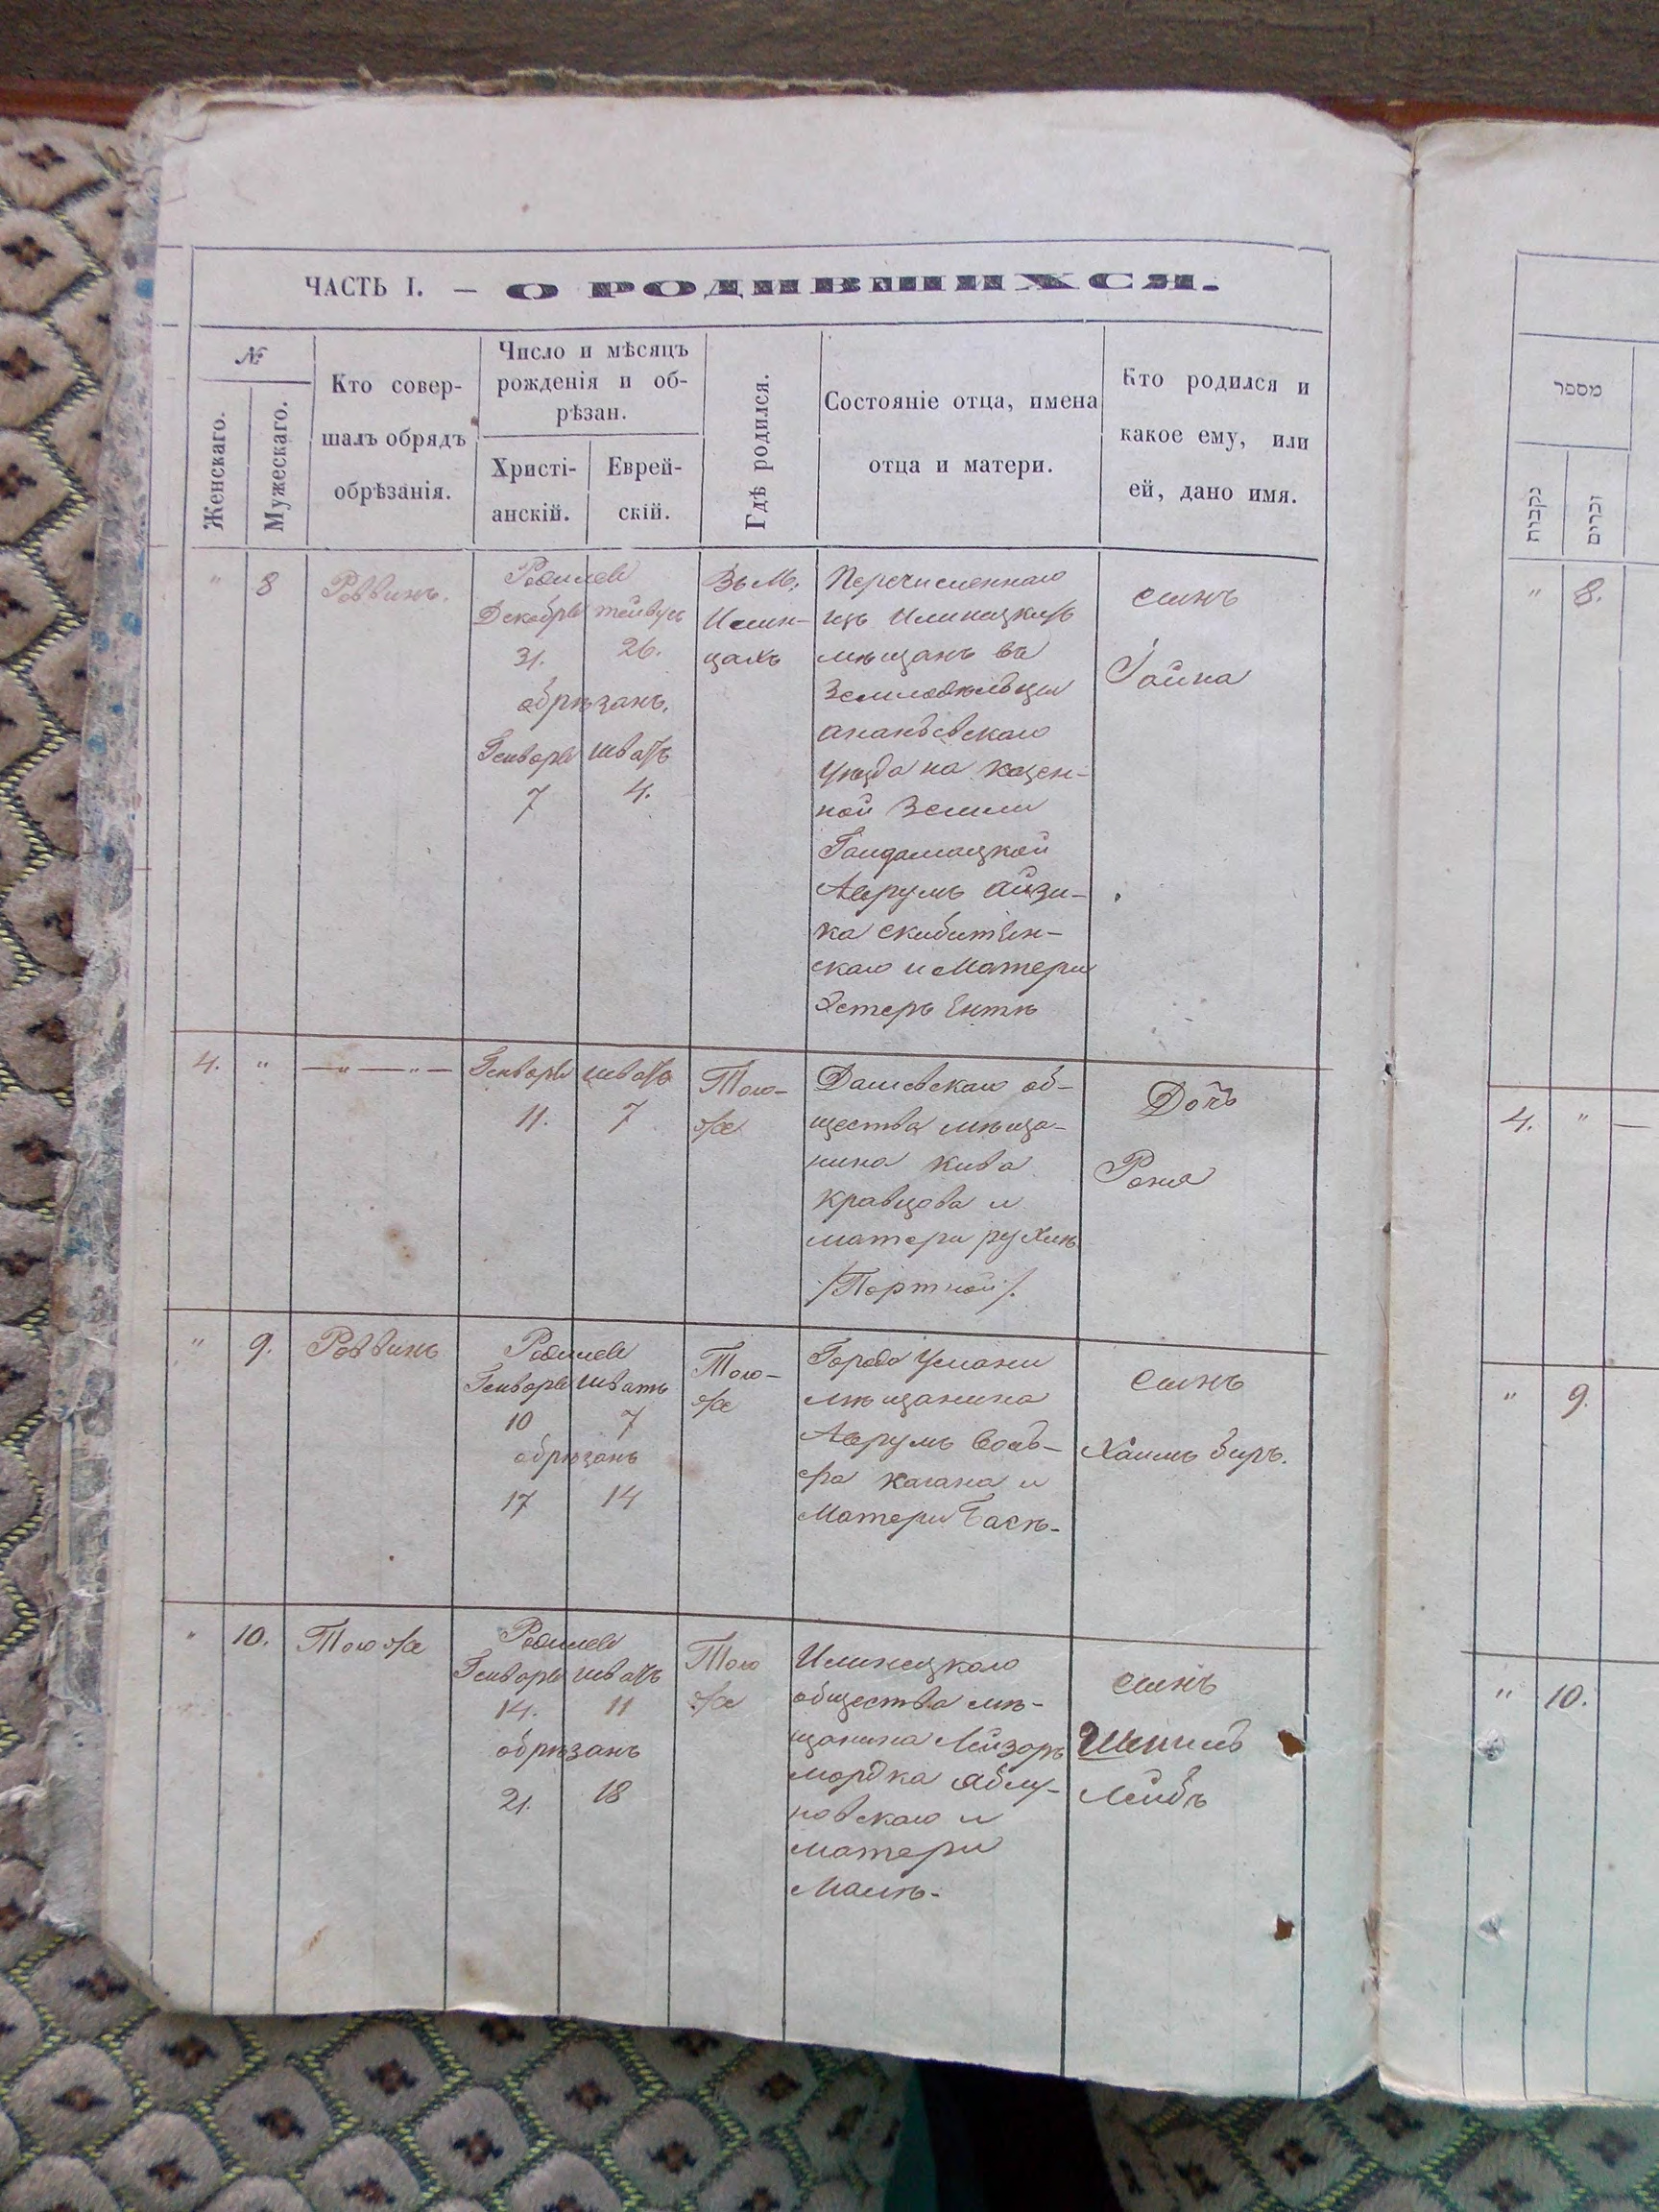 ЧАСТЬ I. — О РОДИВШИХСЯ.
№
Женскаго.
Мужескаго.
Кто совер-
шалъ обрядъ
обрѣзанія.
Число и мѣсяцъ
рожденія и об-
рѣзан.
Христі-
анскій.
Еврей-
скій.
Гдѣ родился.
Состояніе отца, имена
отца и матери.
Кто родился и
какое ему, или
ей, дано имя.
" 8 Раввинъ.
Родился
Декабря
31.
26.
обрѣзанъ.
Генваря шватъ
7 4.
Въ М.
Илин-
цахъ
Перечисленнаго
изъ Илинецкихъ
мѣщанъ въ
Земледѣльцы
ананьевскаго
уѣзда на казен-
ной Земли
Гайдамацкой
Аврумъ айзи-
ка скибитен-
скаго и Матери
Эстеръ Ентѣ
сынъ
4. " — " — " —
Генваря шватъ
11. 7
Того-
же
Дашевскаго об-
щества мѣща-
нина Кива
Кравцова и
матери рухли
/Портной/.
Дочь
9. Раввинъ
Родился
Генваря шватъ
10 7
обрѣзанъ
17 14
Того-
же
Города Умани
мѣщанина
Аврумъ
кагана и
Матери Басѣ-
сынъ
Хаимъ Беръ.
" 10. Того же
Родился
Генваря шватъ
14. 11
обрѣзанъ
21. 18
Того
же
Илинецкаго
общества мѣ-
щанина Лейзоръ
мордка Яблу-
новскаго и
матери
Малѣ-
сынъ
Лейбъ
מספר
נקבות
זכרים
" 8.
4. " —
" 9.
" 10.